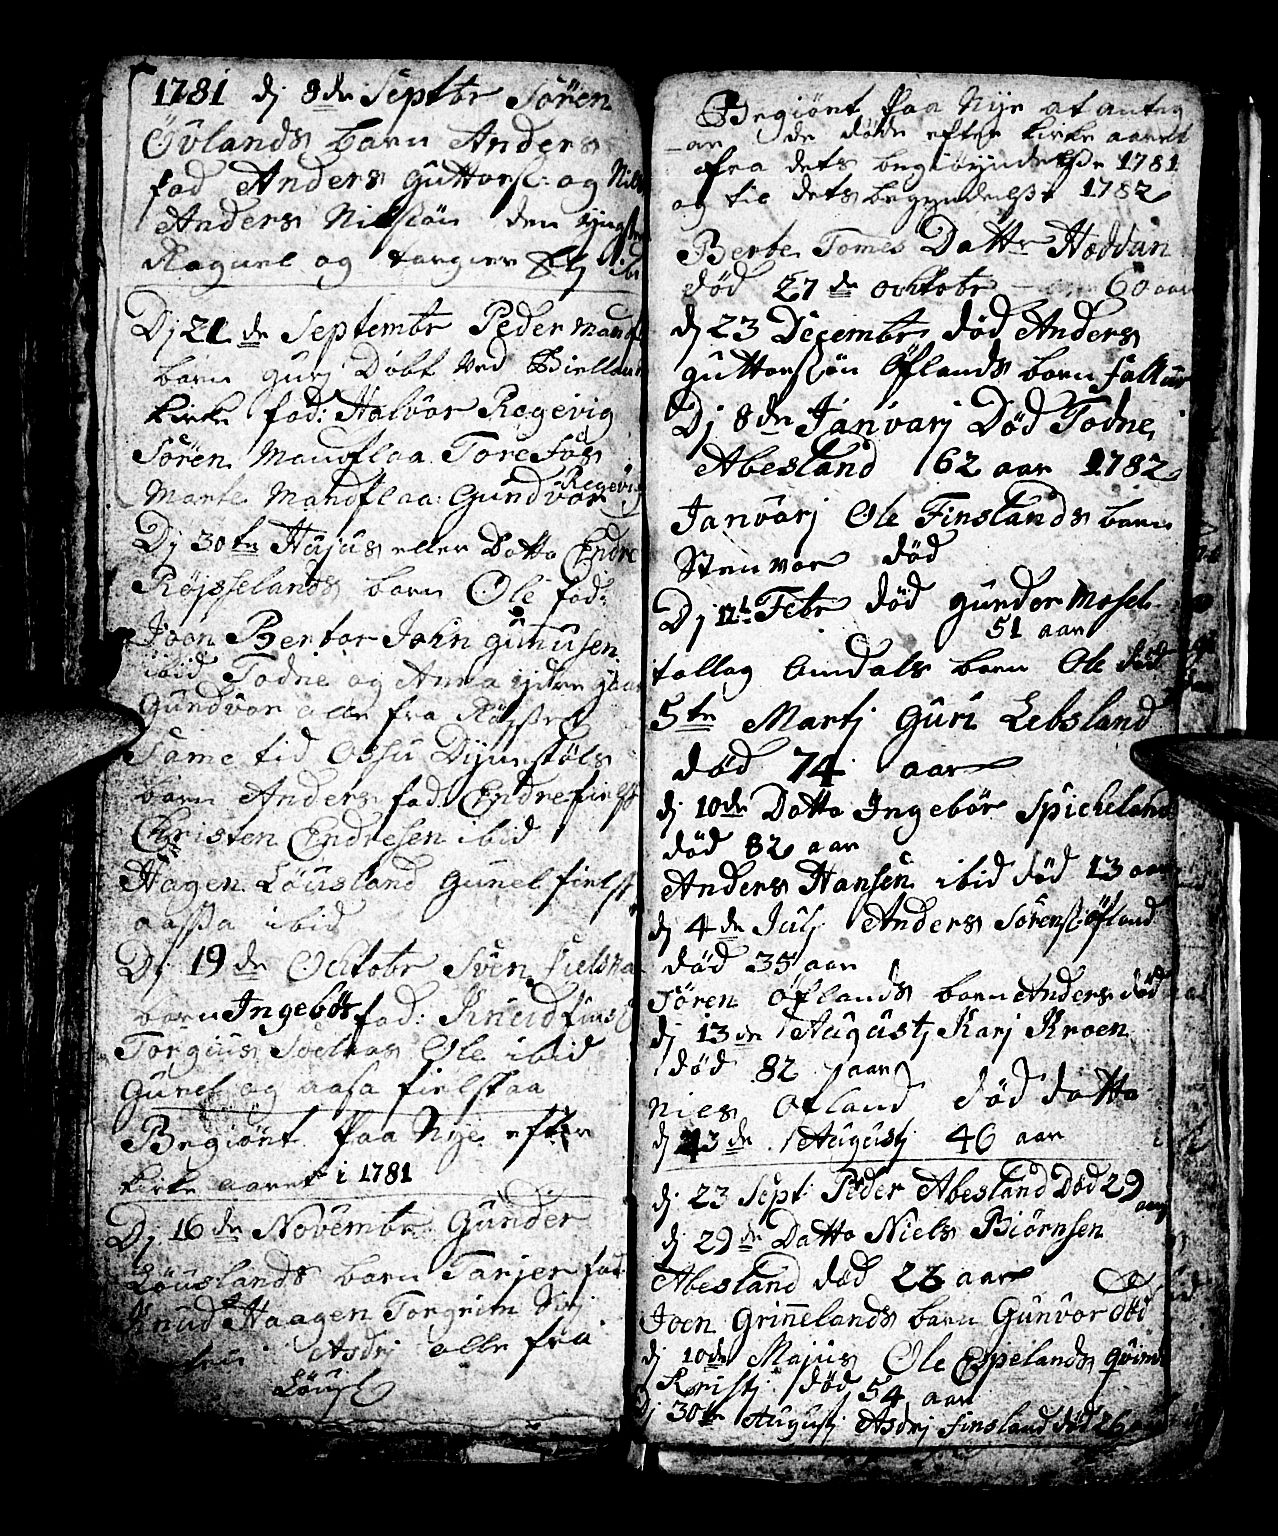 1781 dj 8de Septbr Sören
Övlands barn Anders
fad Anders Guttorſ: og Nils
Anders Nilsſön den yngste
Raguel og torgier
Dj 21 de Septembr Peder Mandf
barn gurj Döbt ved Bielland
kirke fad: Halvör Rogevig
Sören Mandflaa Tore Fos
Marte Mandflaa: Gundvor Rogevig
Dj 30te Hujus eller Datto Endre
Röjsselands barn Ole fad:
Joen Bertor John gunusen
ibid Todne og Anna ydre gaar
Gundvor alle fra
Same tid Ossu
barn Anders fad Endre fielsk
Christen Endresen ibid
Hagen Löusland Gunel fielsk
aassa ibid
Dj 19 de Ochtobr Sven fielska
barn Ingebör fad: Knud
Torgius Ole ibid
Gunel og aasa fielskaa
Begiönt paa Nye efter
kirke aaret i 1781
Dj 16 de Novembr Gunder
Löuslands barn Tarjer fad
Knud Haagen Torgrim Sirj
Asdrj alle fra
Löusl
Begiönt paa Nye at anteg
-ne de döde efter kirke aaret
fra dets begiöyndelße 1781
og til dets begyndelße 1782
Berte Tomes Dattr Høddun
död 27 de ochtobr 60 aar
dj 23 Decembr död Anders
guttorſön Öflands barn
Dj 8de Janvarj Död Todne
Abesland 62 aar 1782
Janvarj Ole Finslands barn
Stenvor död
Dj 12t Febr död gunder Mosel
51 aar
tollag Omdals barn Ole död
5te Martj Guri Lebsland
död 74 aar
dj 10de Datto Ingebör Spickeland
död 82 aar
Anders Hansen ibid död 13 aar
dj 4 de Julj Anders Sörenſ: öfland
död 35 aar
Sören Öflands barn Anders död
dj 13 de Augustj Karj Kroen
död 82 aar
nies Ofland död datto
dj 23 de Augustj 46 aar
dj 23 Sept: Peder Abesland Död 29
aar
dj 29 de Datto Niels Biörnsen
Abesland död 26 aar
Joen Grinelands barn Gunvor död
dj 10de Majus Ole Espelands qvinde
Kristj död 54 aar
Dj 30te Augustj Asdrj Finsland död 26